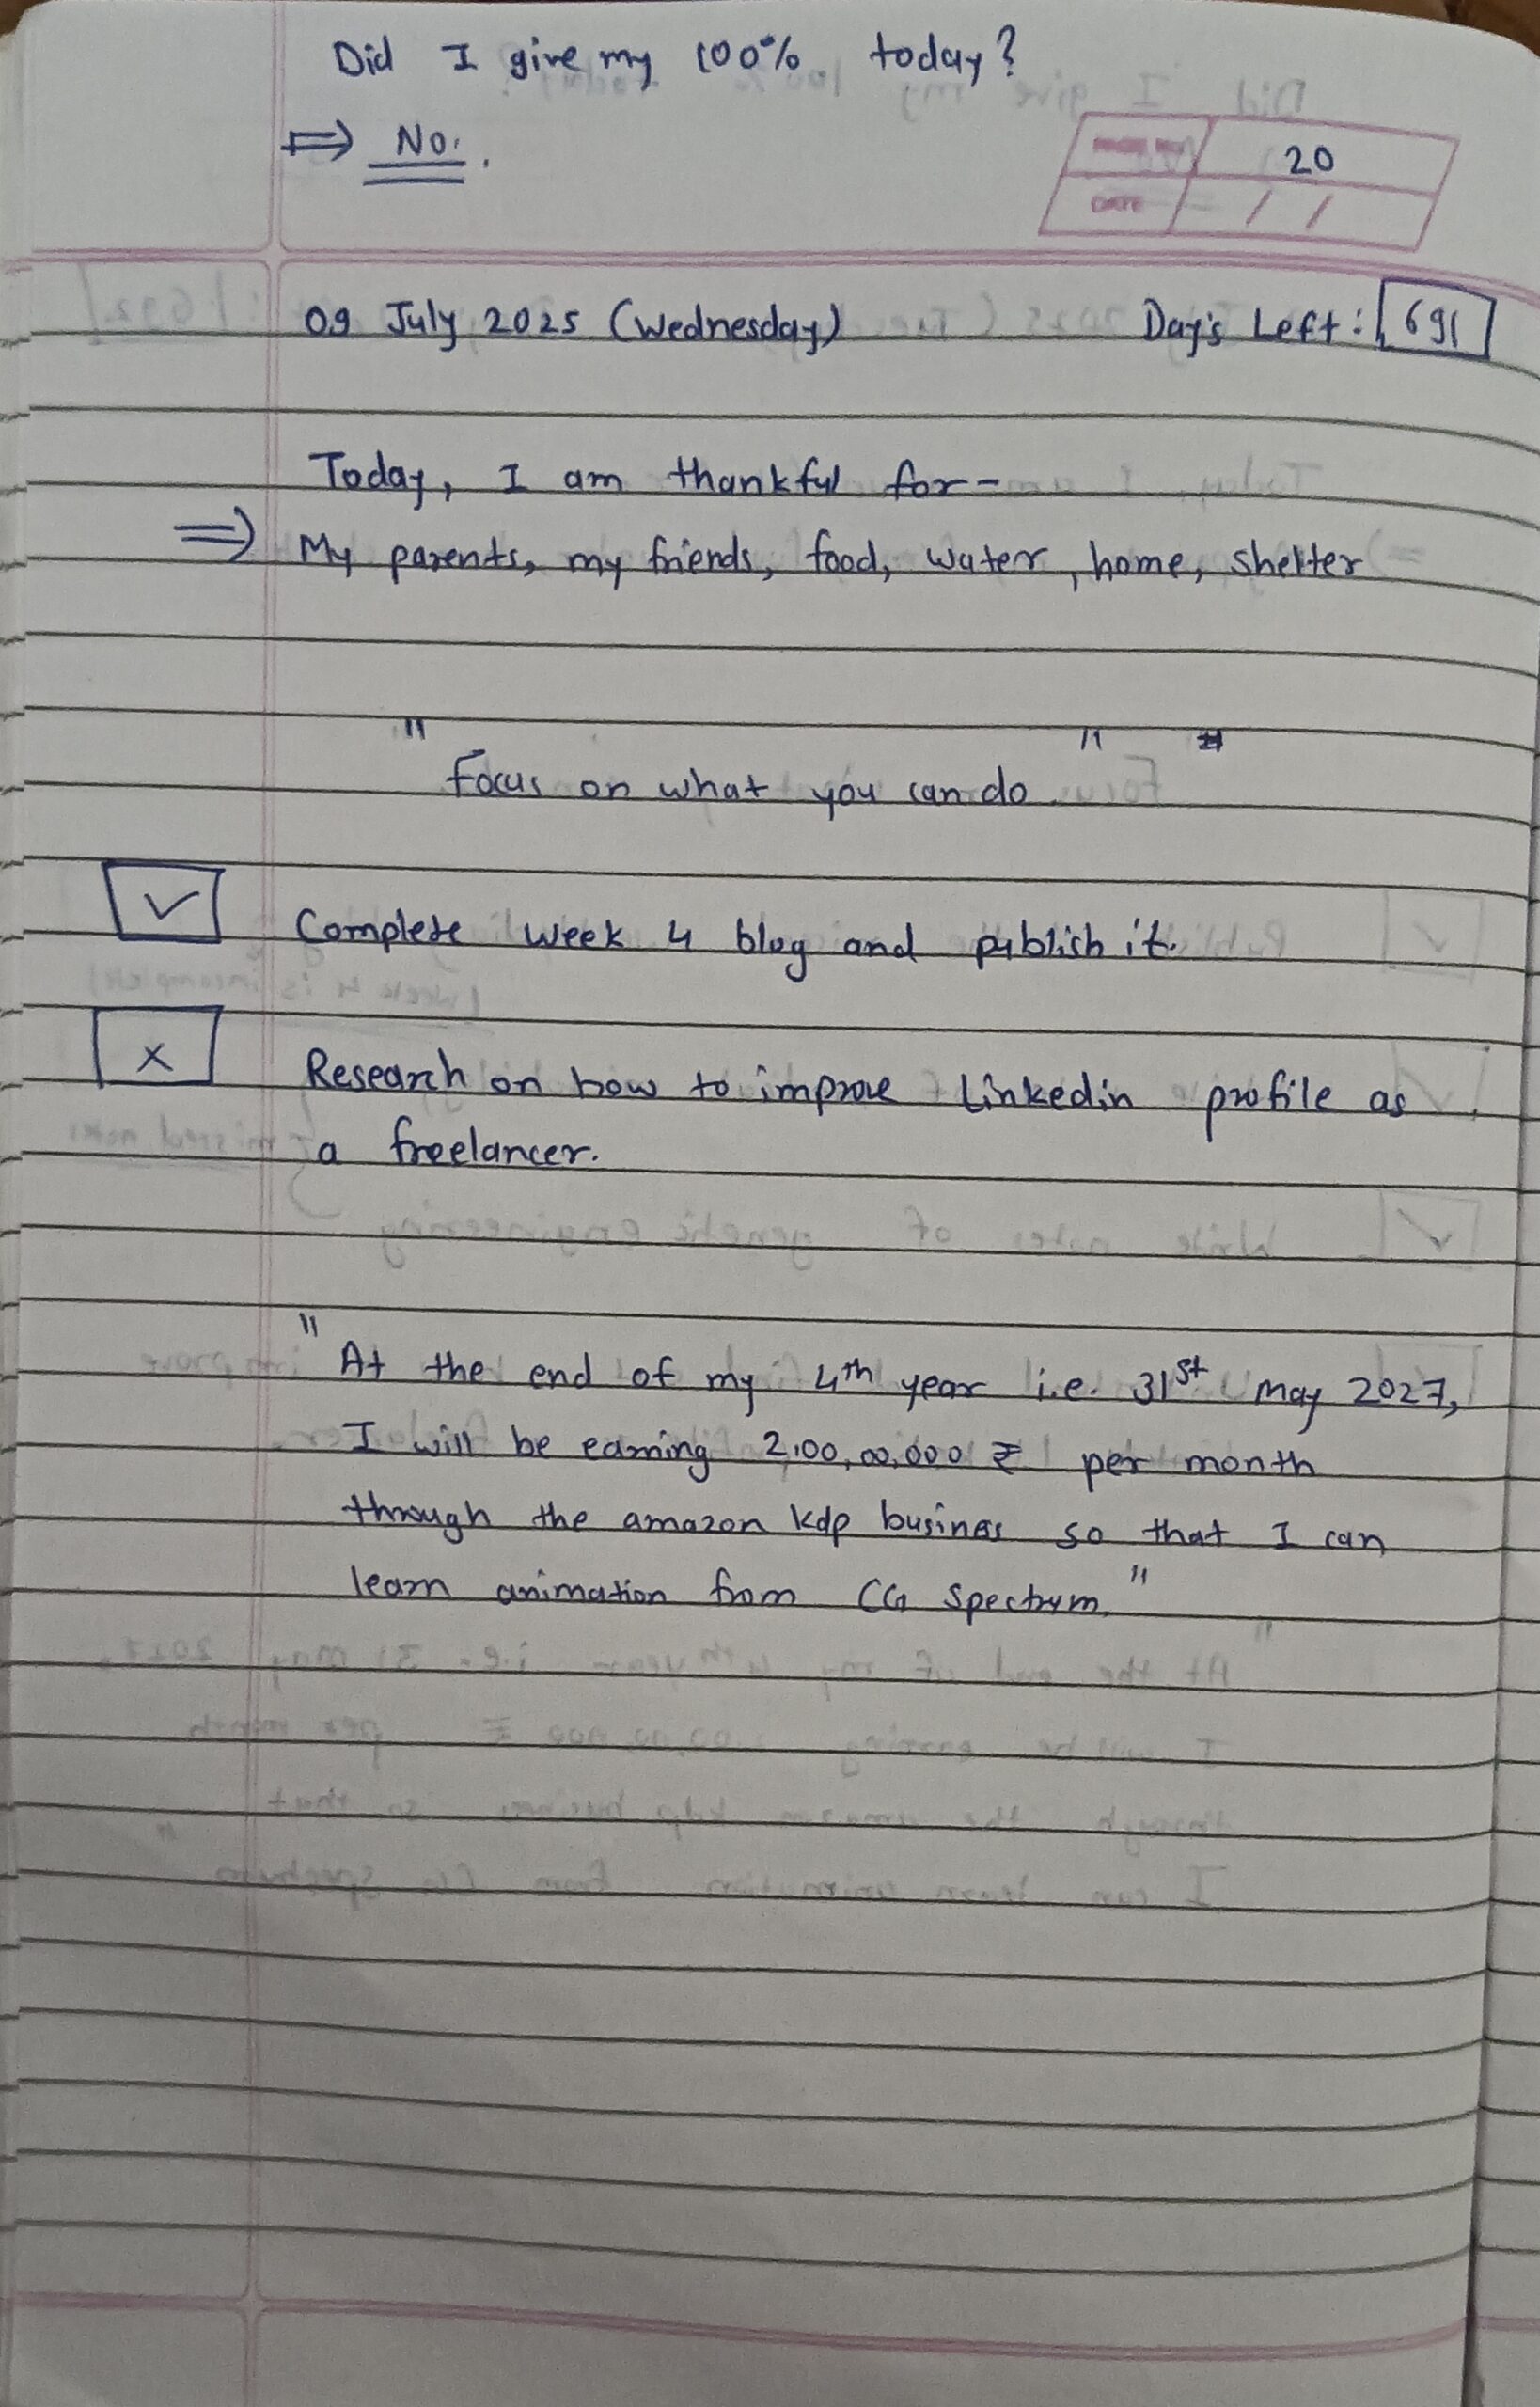 Did I give my 100% today?
⇒ No.
20
DATE / /
09 July 2025 (Wednesday) Day's Left: 691
Today, I am thankful for-
⇒ My parents, my friends, food, water, home, shelter
"Focus on what you can do"
✓ Complete week 4 blog and publish it.
x Research on how to improve Linkedin profile as
a freelancer.
"At the end of my 4th year i.e. 31st may 2027,
I will be earning 2,00,00,000 ₹ per month
through the amazon kdp business so that I can
learn animation from CG Spectrum."